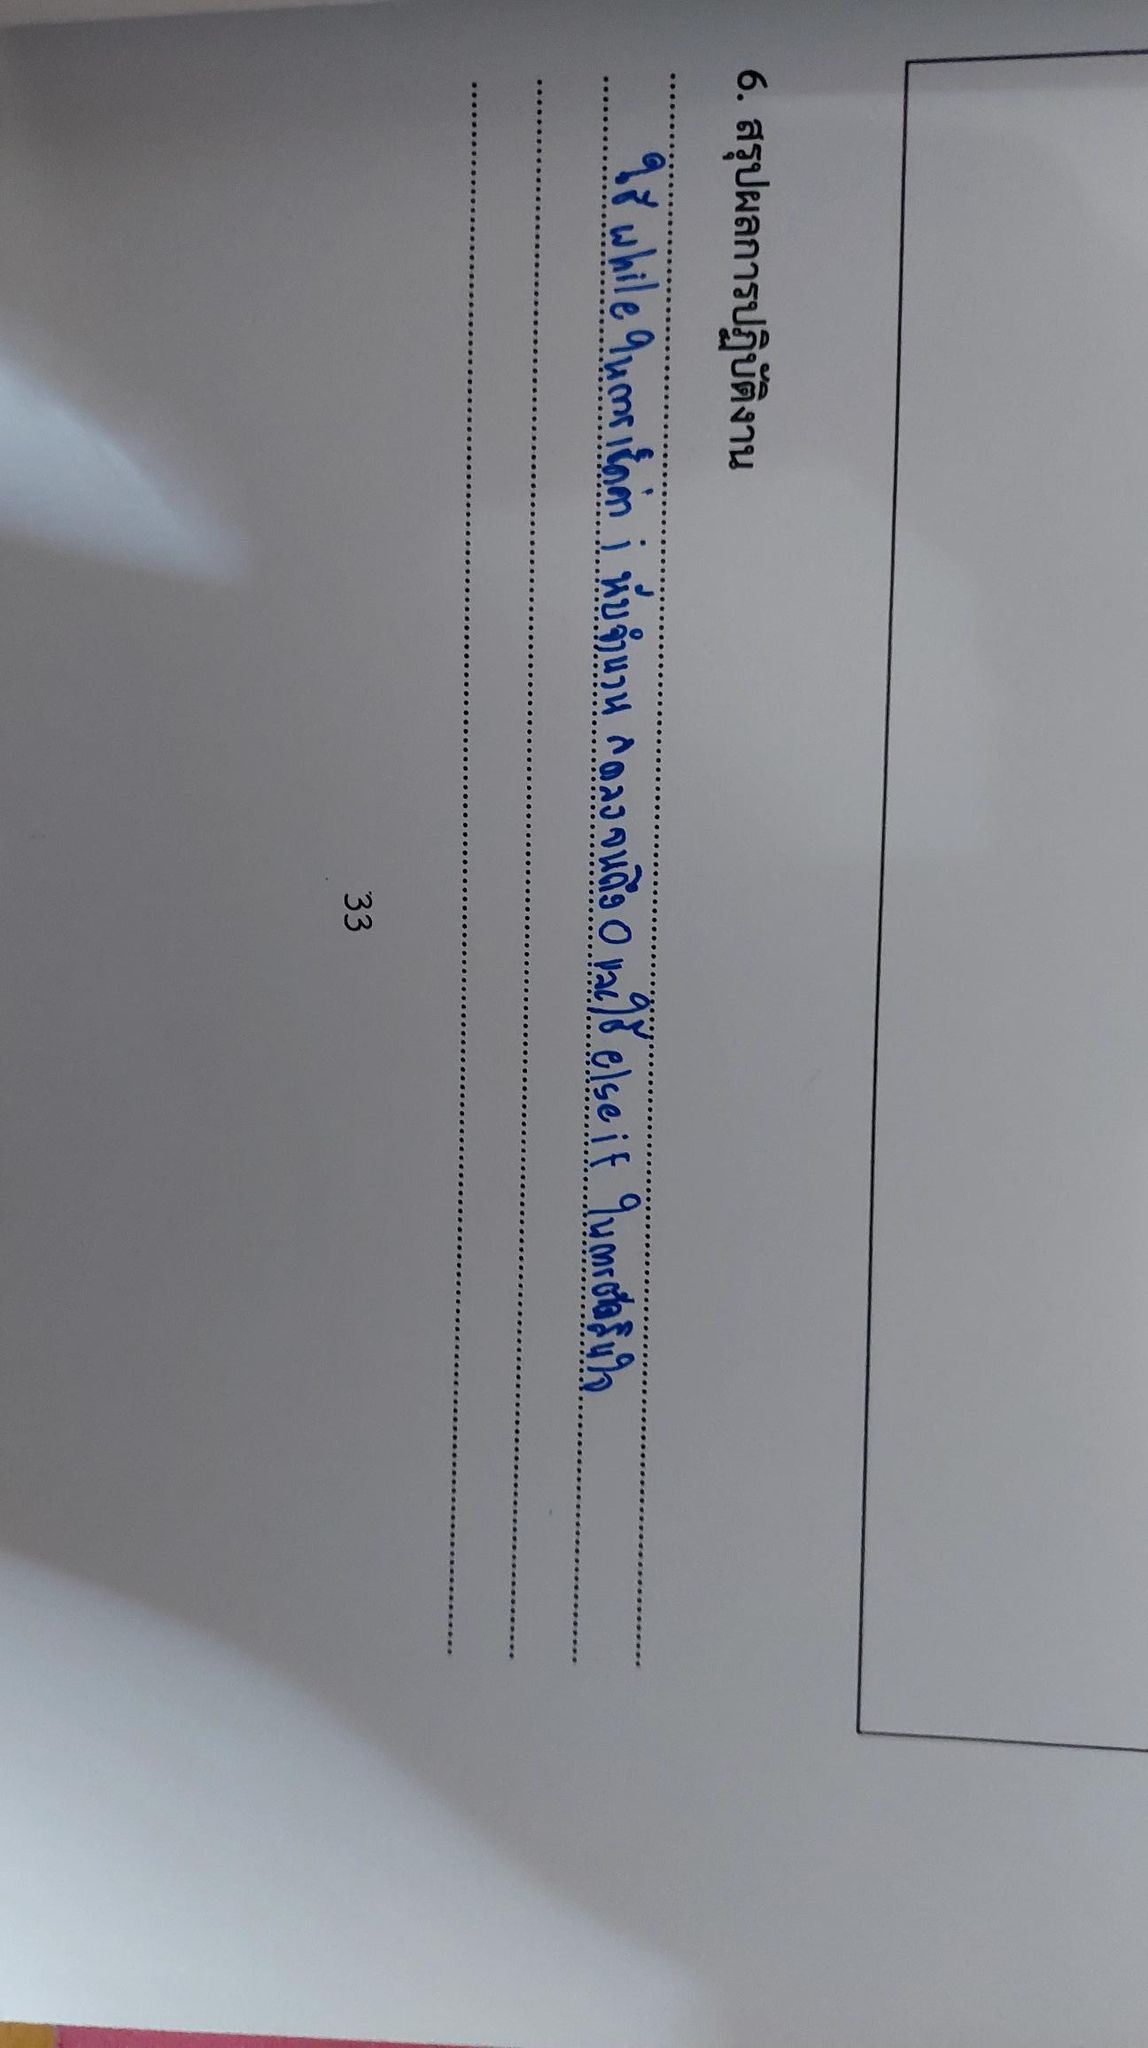 6. สรุปผลการปฏิบัติงาน
ใช้ while ในการเช็คค่า i กับจำนวน ลดลงจนถึง 0 และใช้ else if ในการตัดสินใจ
33